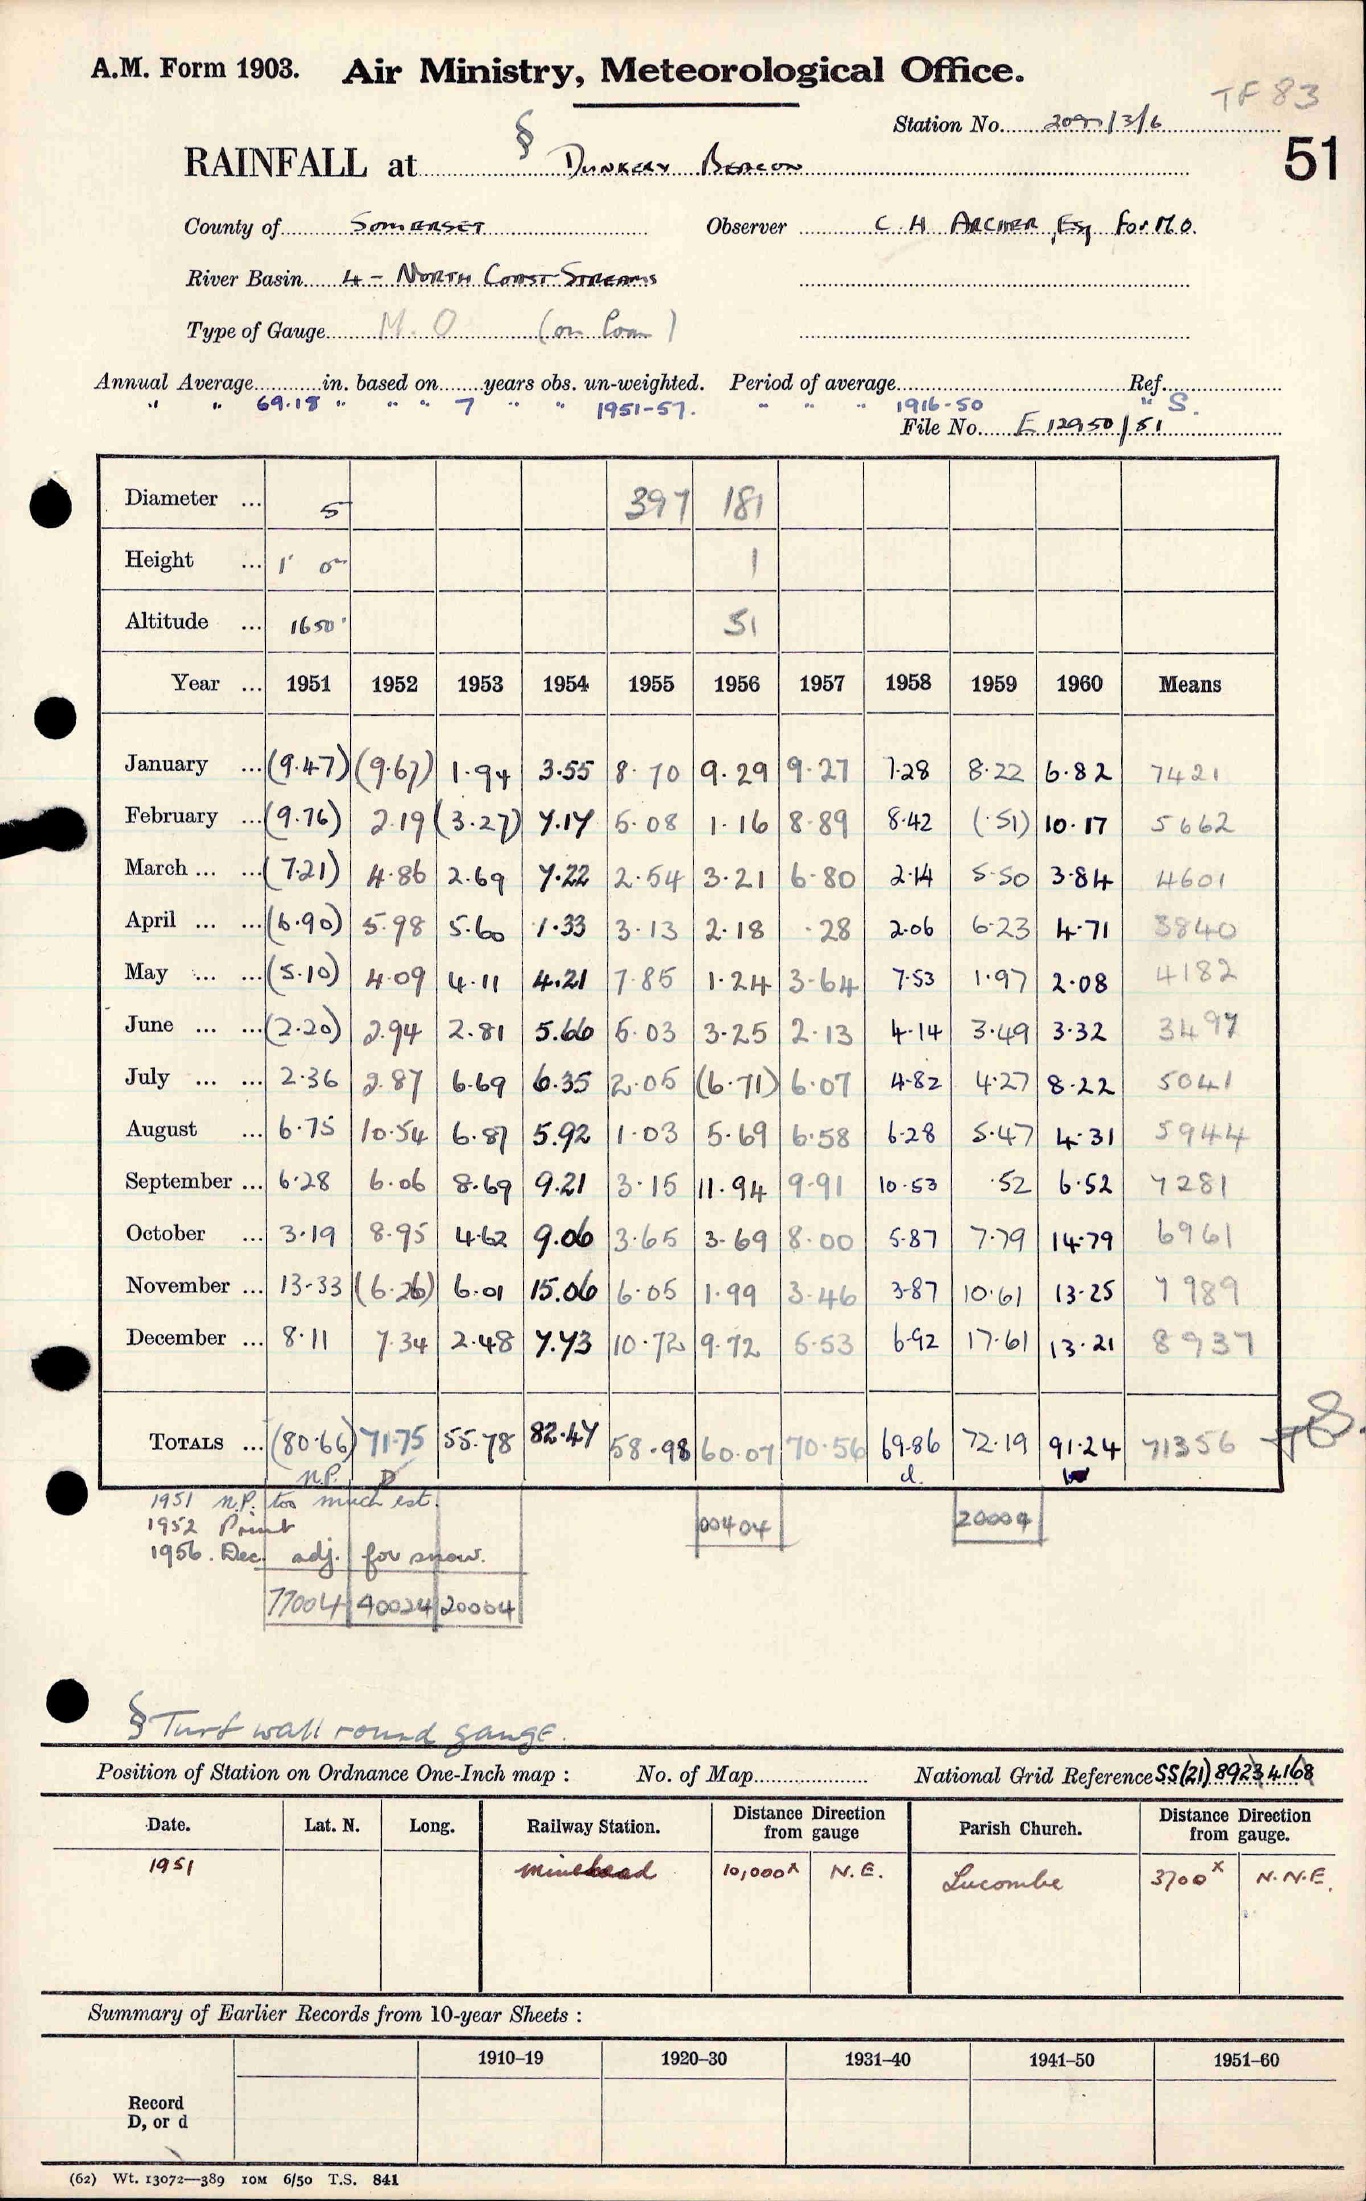 A.M. Form 1903. Air Ministry, Meteorological Office.
TF 83
Station No. /3/6
51
§
RAINFALL at Dunkery Beacon
County of Somerset Observer C H Archer, Esq for M.O.
River Basin 4 - North Coast Streams
Type of Gauge M.O (on loan)
Annual Average in. based on years obs. un-weighted. Period of average Ref.
" " 69.18 " " " 7 " " 1951-57. " " " 1916-50 " S.
File No. E 12950/51
Diameter ... 5 397 181
Height ... 1' 0" 1
Altitude ... 1650' 51
Year ... 1951 1952 1953 1954 1955 1956 1957 1958 1959 1960 Means
January ... (9.47) (9.67) 1.94 3.55 8.70 9.29 9.27 7.28 8.22 6.82 7421
February ... (9.76) 2.19 (3.27) 7.17 5.08 1.16 8.89 8.42 (.51) 10.17 5662
March ... ... (7.21) 4.86 2.69 7.22 2.54 3.21 6.80 2.14 5.50 3.84 4601
April ... ... (6.90) 5.98 5.60 1.33 3.13 2.18 .28 2.06 6.23 4.71 3840
May ... ... (5.10) 4.09 4.11 4.21 7.85 1.24 3.64 7.53 1.97 2.08 4182
June ... ... (2.20) 2.94 2.81 5.66 5.03 3.25 2.13 4.14 3.49 3.32 3497
July ... ... 2.36 2.87 6.69 6.35 2.05 (6.71) 6.07 4.82 4.27 8.22 5041
August ... 6.75 10.54 6.87 5.92 1.03 5.69 6.58 6.28 5.47 4.31 5944
September ... 6.28 6.06 8.69 9.21 3.15 11.94 9.91 10.53 .52 6.52 7281
October ... 3.19 8.95 4.62 9.06 3.65 3.69 8.00 5.87 7.79 14.79 6961
November ... 13.33 (6.26) 6.01 15.06 6.05 1.99 3.46 3.87 10.61 13.25 7989
December ... 8.11 7.34 2.48 7.73 10.72 9.72 5.53 6.92 17.61 13.21 8937
Totals ... (80.66) 71.75 55.78 82.47 58.98 60.07 70.56 69.86 72.19 91.24 71356
n.P. D d.
1951 n.P. too much est.
1952 Print
1956. Dec. adj. for snow.
00404 20004
77004 40024 20004
§ Turf wall round gauge.
Position of Station on Ordnance One-Inch map : No. of Map National Grid Reference SS(21) 8923 4168
Date. Lat. N. Long. Railway Station. Distance Direction from gauge Parish Church. Distance Direction from gauge.
1951 Minehead 10,000x N.E. Lucombe 3700x N.N.E.
Summary of Earlier Records from 10-year Sheets :
1910–19 1920–30 1931–40 1941–50 1951–60
Record
D, or d
(62) Wt. 13072—389 10M 6/50 T.S. 841